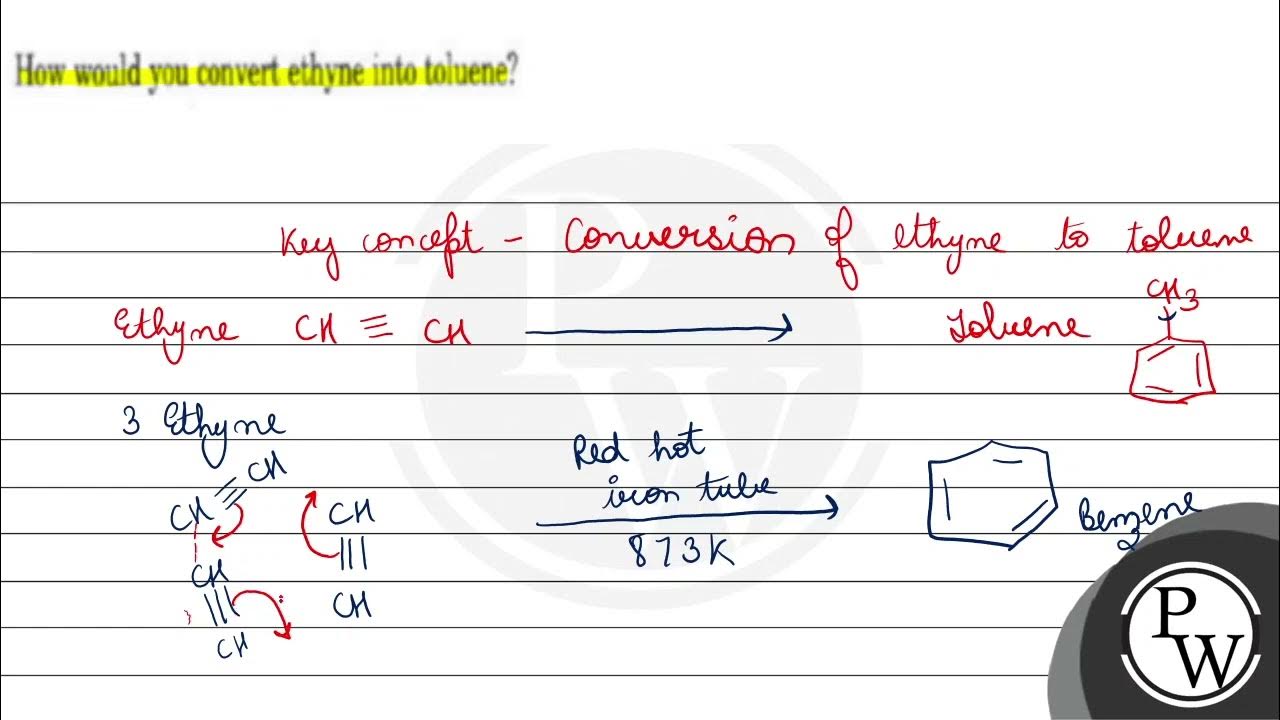 How would you convert ethyne into toluene?
Key concept - Conversion of ethyne to toluene
CH3
Ethyne CH ≡ CH Toluene
3 Ethyne
Red hot
iron tube
873K
CH ≡ CH
CH ≡ CH
CH ≡ CH
Benzene
PW
PW